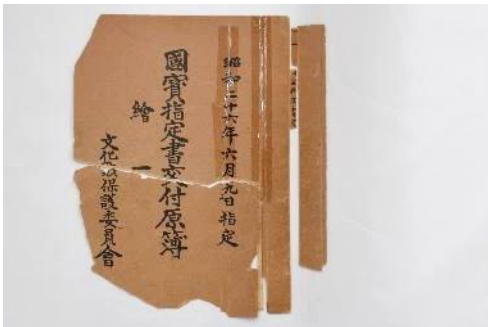 昭和二十六年六月九日指定
國寳指定書交付原簿
繪 一
文化財保護委員會